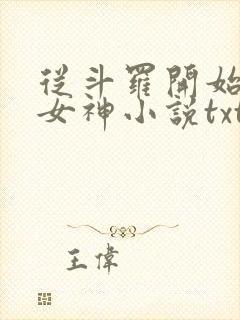 從斗羅開始
女神小說txt
王偉